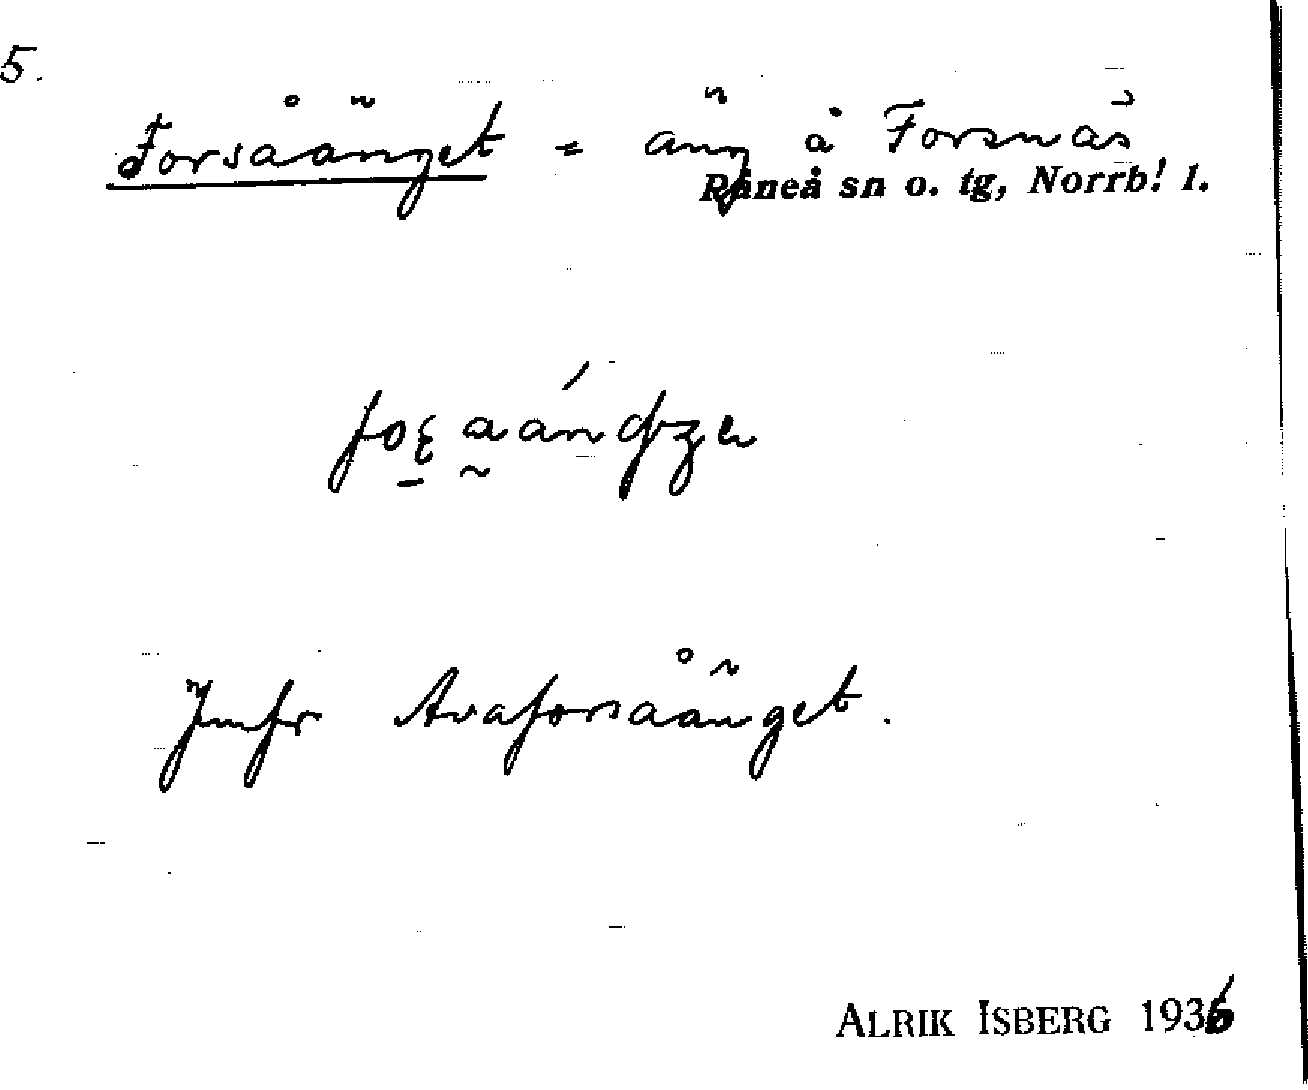 5.
Forsåänget = äng å Forsnäs
Råneå sn o. tg, Norrb! l.
Jmfr Avaforsåänget.
ALRIK ISBERG 1936